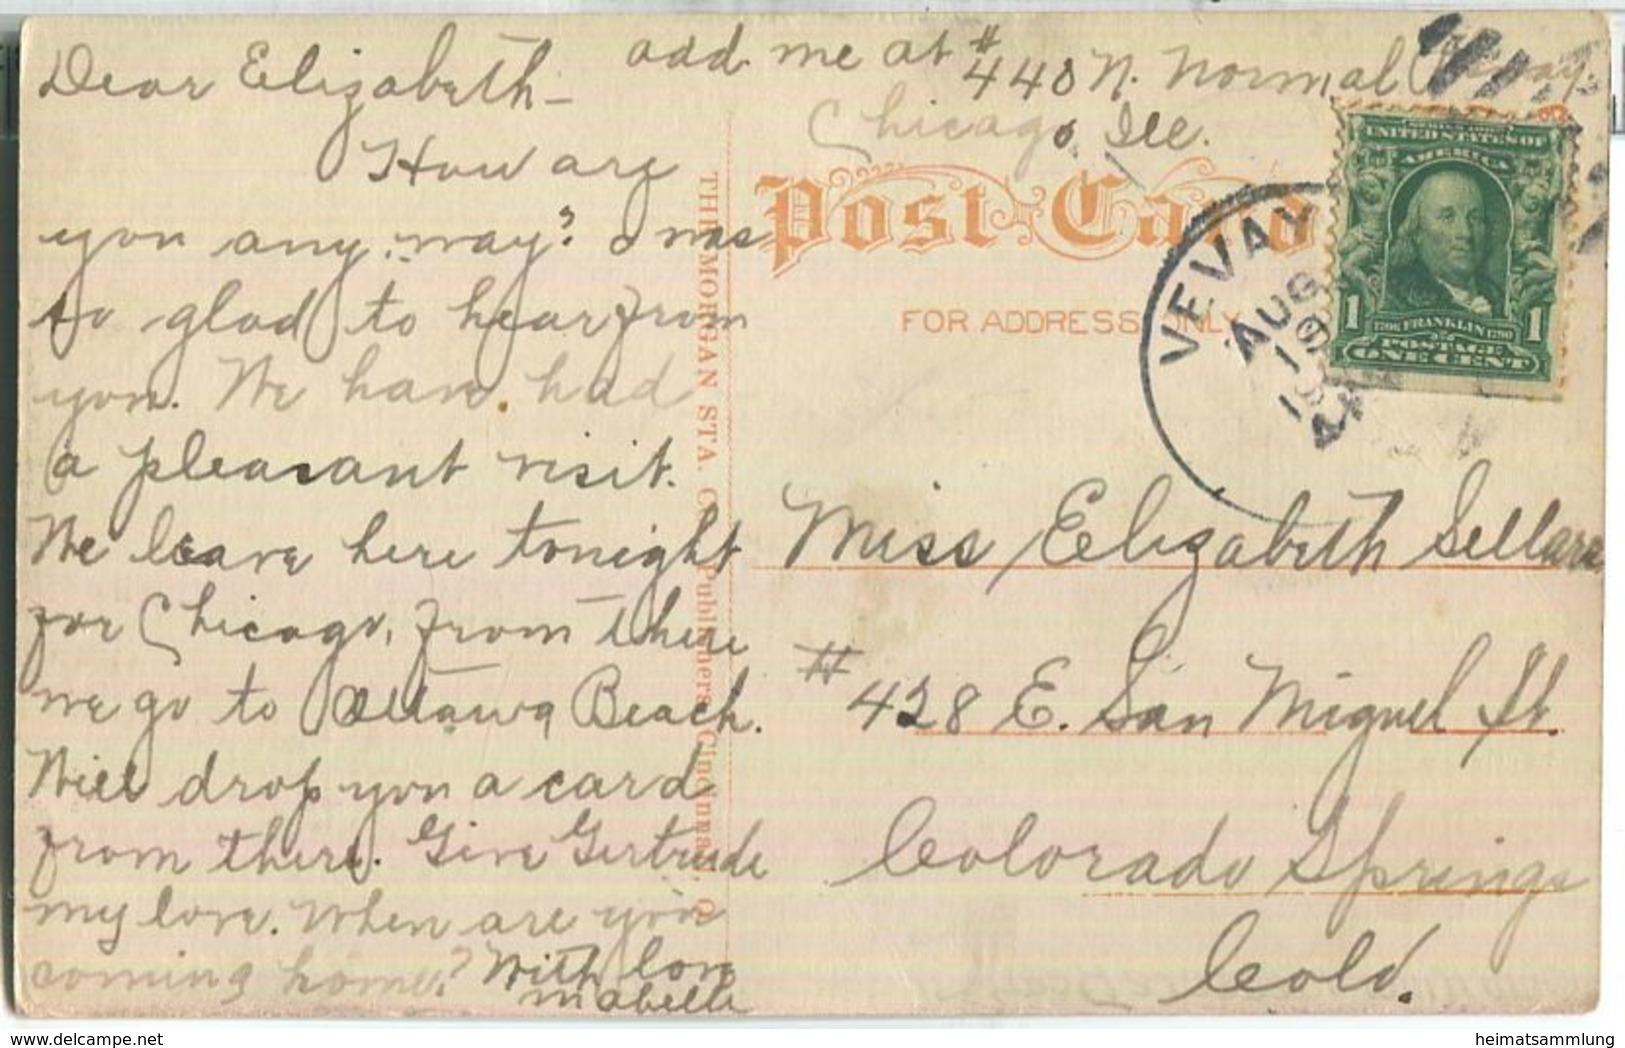 Dear Elizabeth-
add. me at # 440 N. Normal
Chicago, Ill.
How are
you any. way? I was
so glad to hear from
you. We have had
a pleasant visit.
We leave here tonight
for Chicago, from there
we go to Ottawa Beach.
Will drop you a card
from there. Give Gertrude
my love. When are you
coming home? With love
Mabelle
THE MORGAN STA. CO. Publishers, Cincinnati, O.
Post Card
FOR ADDRESS ONLY
VEVAY
AUG
19
UNITED STATES OF
AMERICA
1 1706 FRANKLIN 1790 1
POSTAGE
ONE CENT
Miss Elizabeth Sellars
# 428 E. San Miguel St.
Colorado Springs
Colo.
heimatsammlung